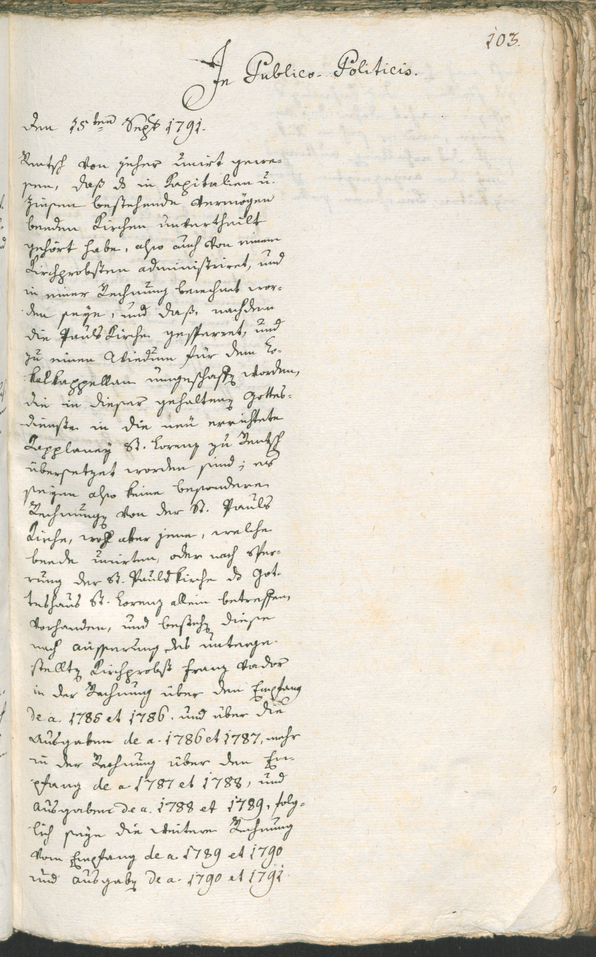 203.
In Publico-Politicis.
den 15ten Sept 1791.
Rentsch von jeher unirt gewe-
sen, daß ds in Kapitalien u.
Zinsen bestehende Vermögen
beeden Kirchen unvertheilt
gehört habe, also auch von einem
Kirchprobsten administriret, und
in einer Rechnung berechnet wor-
den seye, und daß, nachdem
die Pauls Kirche gesperret, und
zu einem Widum für dem Lo-
kalkappellan umgeschaft worden,
die in dieser gehaltene Gottes-
dienste in die neu errichtete
Kapplaney St. Lorenz zu Rentsch
übersetzet worden sind; es
seyen also keine besondere
Rechnungen von der St. Pauls
Kirche, wohl aber jene, welche
beede unirten, oder nach Sper-
rung der St. Paulskirche ds Got-
teshaus St. Lorenz allein betreffen,
vorhanden, und bestehen diese
nach Äusserung des unterge-
stellten Kirchprobst Franz Vader
in der Rechnung über den Empfang
de a. 1785 et 1786. und über die
Ausgaben de a. 1786 et 1787, mehr
in der Rechnung über den Em-
pfang de a. 1787 et 1788, und
Ausgaben de a. 1788 et 1789, folg-
lich seye die weitere Rechnung
vom Empfang de a. 1789 et 1790
und Ausgab de a. 1790 et 1791